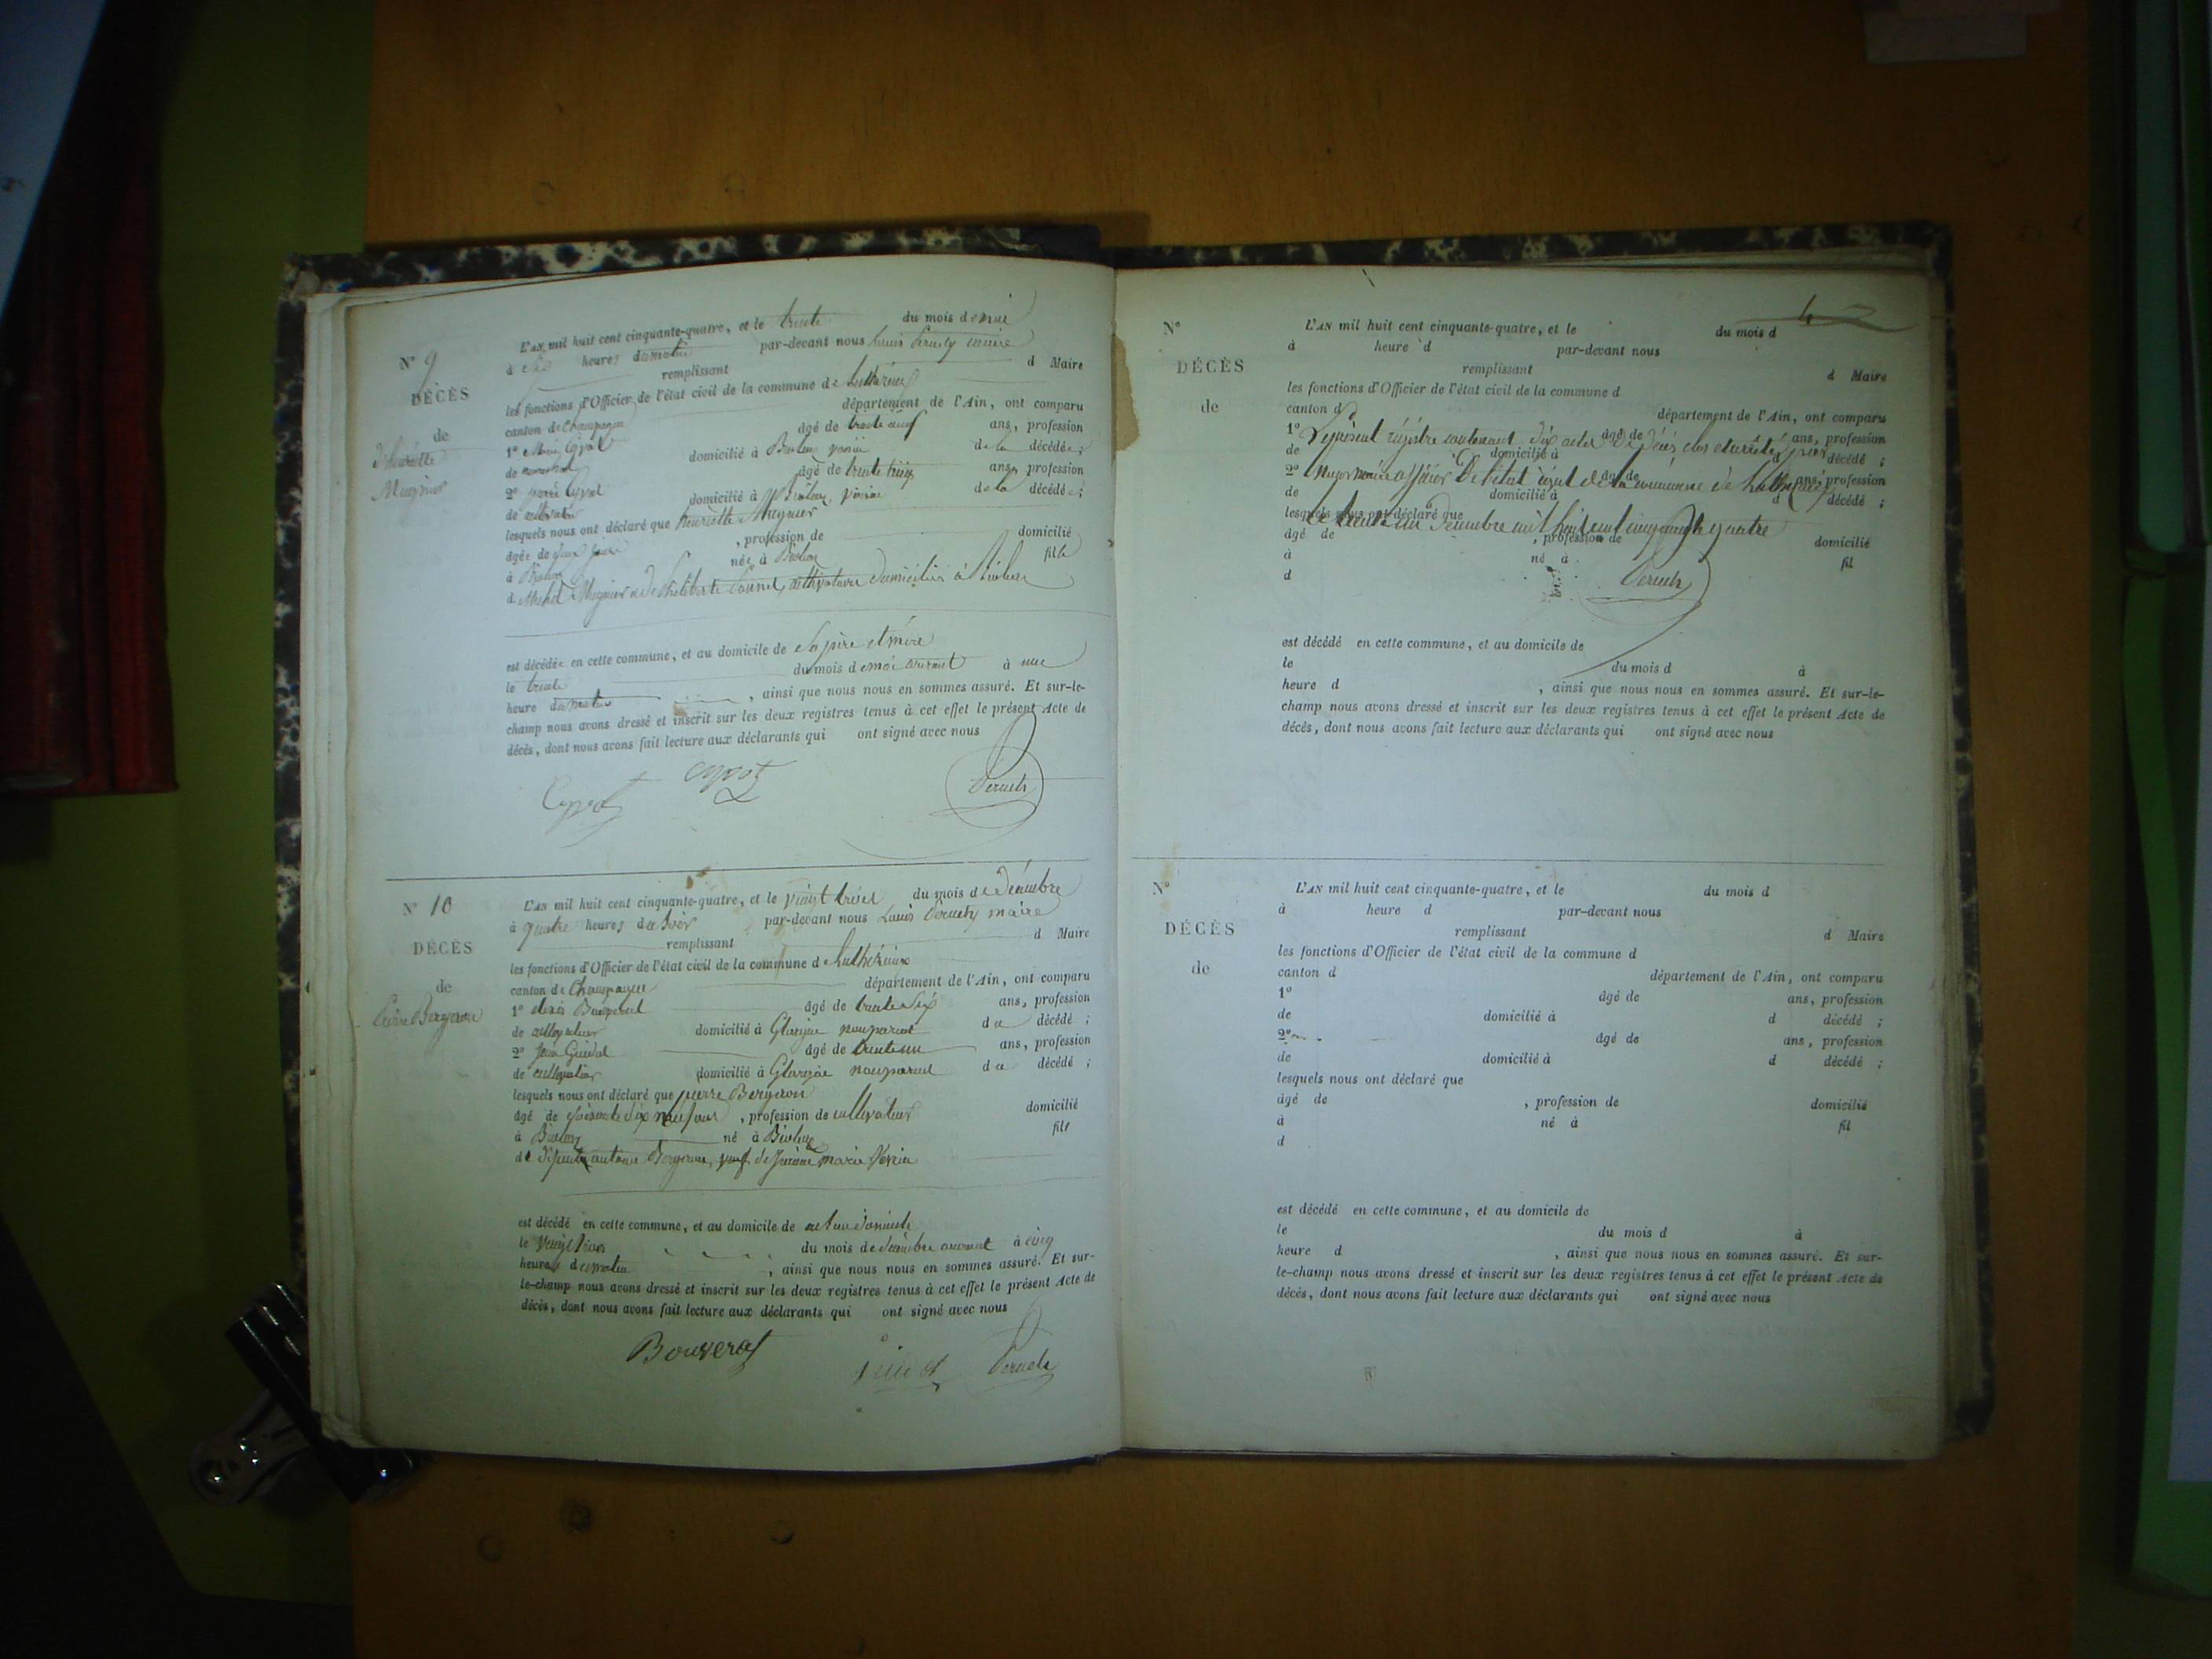 N° 9
DÉCÈS
de
Henriette
Mugnier
L'AN mil huit cent cinquante-quatre, et le trente du mois de mai
à heures du matin par-devant nous Louis maire
remplissant d Maire
les fonctions d'Officier de l'état civil de la commune de
canton de Champagne département de l'Ain, ont comparu
1° âgé de trente neuf ans, profession
de domicilié à voisin de la décédée;
2° âgé de trente trois ans, profession
de domicilié à voisin de la décédée;
lesquels nous ont déclaré que henriette Mugnier
âgée de , profession de domicilié
à née à fille
d Mugnier domiciliés à
est décédée en cette commune, et au domicile de Ses père et mère
le trente du mois de mai courant à une
heure du matin , ainsi que nous nous en sommes assuré. Et sur-le-
champ nous avons dressé et inscrit sur les deux registres tenus à cet effet le présent Acte de
décès, dont nous avons fait lecture aux déclarants qui ont signé avec nous
N° 10
DÉCÈS
de
Pierre Bergeron
L'AN mil huit cent cinquante-quatre, et le vingt trois du mois de décembre
à quatre heures du Soir par-devant nous Louis maire
remplissant d Maire
les fonctions d'Officier de l'état civil de la commune d
canton de Champagne département de l'Ain, ont comparu
1° âgé de trente Six ans, profession
de cultivateur domicilié à non parent du décédé ;
2° Jean âgé de trente un ans, profession
de cultivateur domicilié à non parent du décédé ;
lesquels nous ont déclaré que pierre Bergeron
âgé de Soixante dix neuf ans , profession de cultivateur domicilié
à né à fils
de antoine Bergeron, veuf de marie
est décédé en cette commune, et au domicile de
le vingt trois du mois de décembre courant à cinq
heures du matin , ainsi que nous nous en sommes assuré. Et sur-
le-champ nous avons dressé et inscrit sur les deux registres tenus à cet effet le présent Acte de
décès, dont nous avons fait lecture aux déclarants qui ont signé avec nous
Bouverat
N°
DÉCÈS
de
4
L'AN mil huit cent cinquante-quatre, et le du mois d
à heure d par-devant nous
remplissant d Maire
les fonctions d'Officier de l'état civil de la commune d
canton d département de l'Ain, ont comparu
1° âgé de ans, profession
Le présent régistre contenant dix actes de décès clos et arrêté par
de domicilié à d décédé ;
2° âgé de ans, profession
Nous maire officier De l'état civil de la commune de
de domicilié à d décédé ;
lesquels nous ont déclaré que
le trente un Décembre mil huit cent cinquante quatre
âgé de , profession de domicilié
à né à fil
d
est décédé en cette commune, et au domicile de
le du mois d à
heure d , ainsi que nous nous en sommes assuré. Et sur-le-
champ nous avons dressé et inscrit sur les deux registres tenus à cet effet le présent Acte de
décès, dont nous avons fait lecture aux déclarants qui ont signé avec nous
N°
DÉCÈS
de
L'AN mil huit cent cinquante-quatre, et le du mois d
à heure d par-devant nous
remplissant d Maire
les fonctions d'Officier de l'état civil de la commune d
canton d département de l'Ain, ont comparu
1° âgé de ans, profession
de domicilié à d décédé ;
2° âgé de ans, profession
de domicilié à d décédé ;
lesquels nous ont déclaré que
âgé de , profession de domicilié
à né à fil
d
est décédé en cette commune, et au domicile de
le du mois d à
heure d , ainsi que nous nous en sommes assuré. Et sur-
le-champ nous avons dressé et inscrit sur les deux registres tenus à cet effet le présent Acte de
décès, dont nous avons fait lecture aux déclarants qui ont signé avec nous